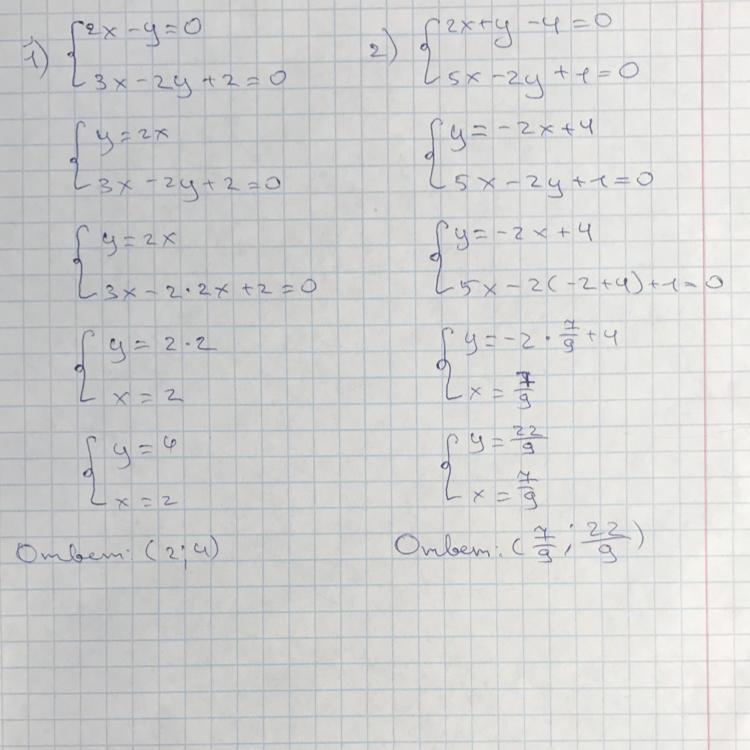 1) { 2x - y = 0
3x - 2y + 2 = 0
{ y = 2x
3x - 2y + 2 = 0
{ y = 2x
3x - 2·2x + 2 = 0
{ y = 2·2
x = 2
{ y = 4
x = 2
Ответ: (2; 4)
2) { 2x + y - 4 = 0
5x - 2y + 1 = 0
{ y = -2x + 4
5x - 2y + 1 = 0
{ y = -2x + 4
5x - 2(-2 + 4) + 1 = 0
{ y = -2 · 7/9 + 4
x = 7/9
{ y = 22/9
x = 7/9
Ответ: (7/9; 22/9)